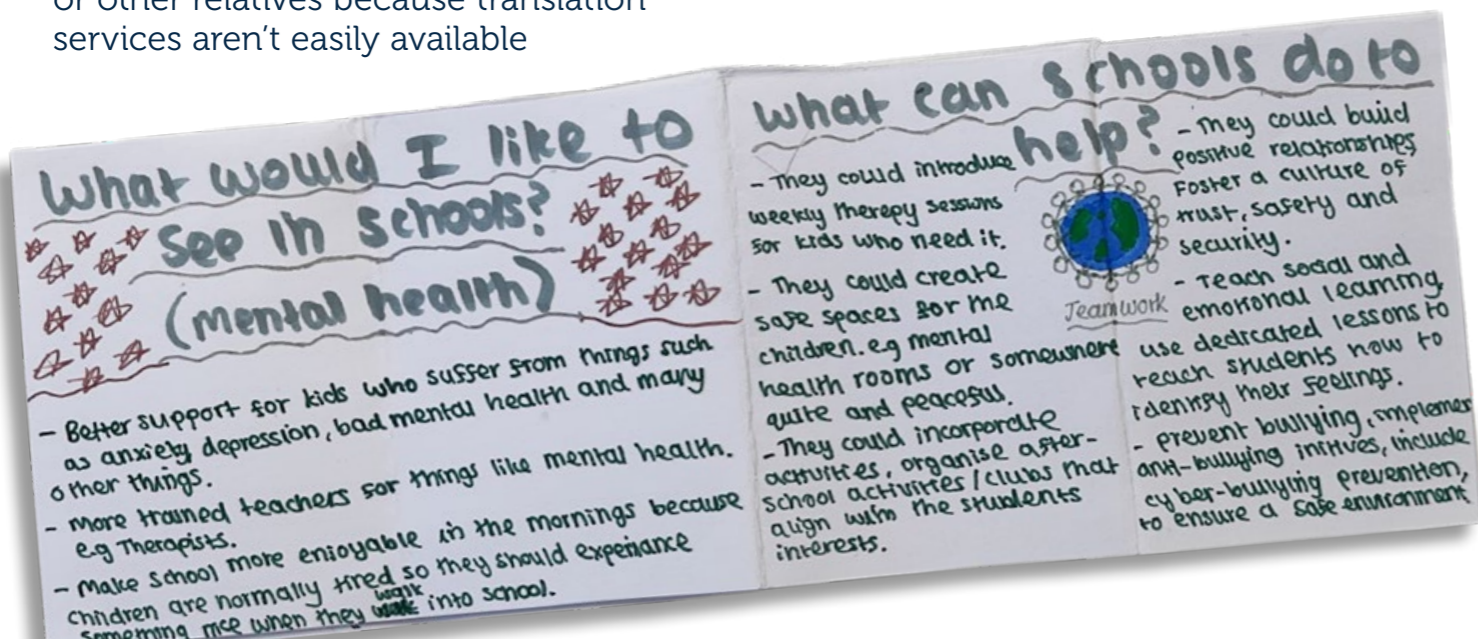 or other relatives because translation
services aren't easily available
What would I like to
see in schools?
(mental health)
- Better support for kids who suffer from things such
as anxiety, depression, bad mental health and many
other things.
- More trained teachers for things like mental health.
e.g Therapists.
- Make school more enjoyable in the mornings because
children are normally tired so they should experiance
something nice when they walk into school.
What can schools do to
help?
- They could introduce
weekly therepy sessions
for kids who need it.
- They could create
safe spaces for the
children. e.g mental
health rooms or somewhere
quite and peaceful.
- They could incorporate
activities, organise after-
school activities/clubs that
align with the students
interests.
Teamwork
- They could build
positive relationships,
Foster a culture of
trust, safety and
security.
- Teach social and
emotional learning,
use dedicated lessons to
teach students how to
identify their feelings.
- prevent bullying, implement
anti-bullying intitives, include
cyber-bullying prevention,
to ensure a safe environment